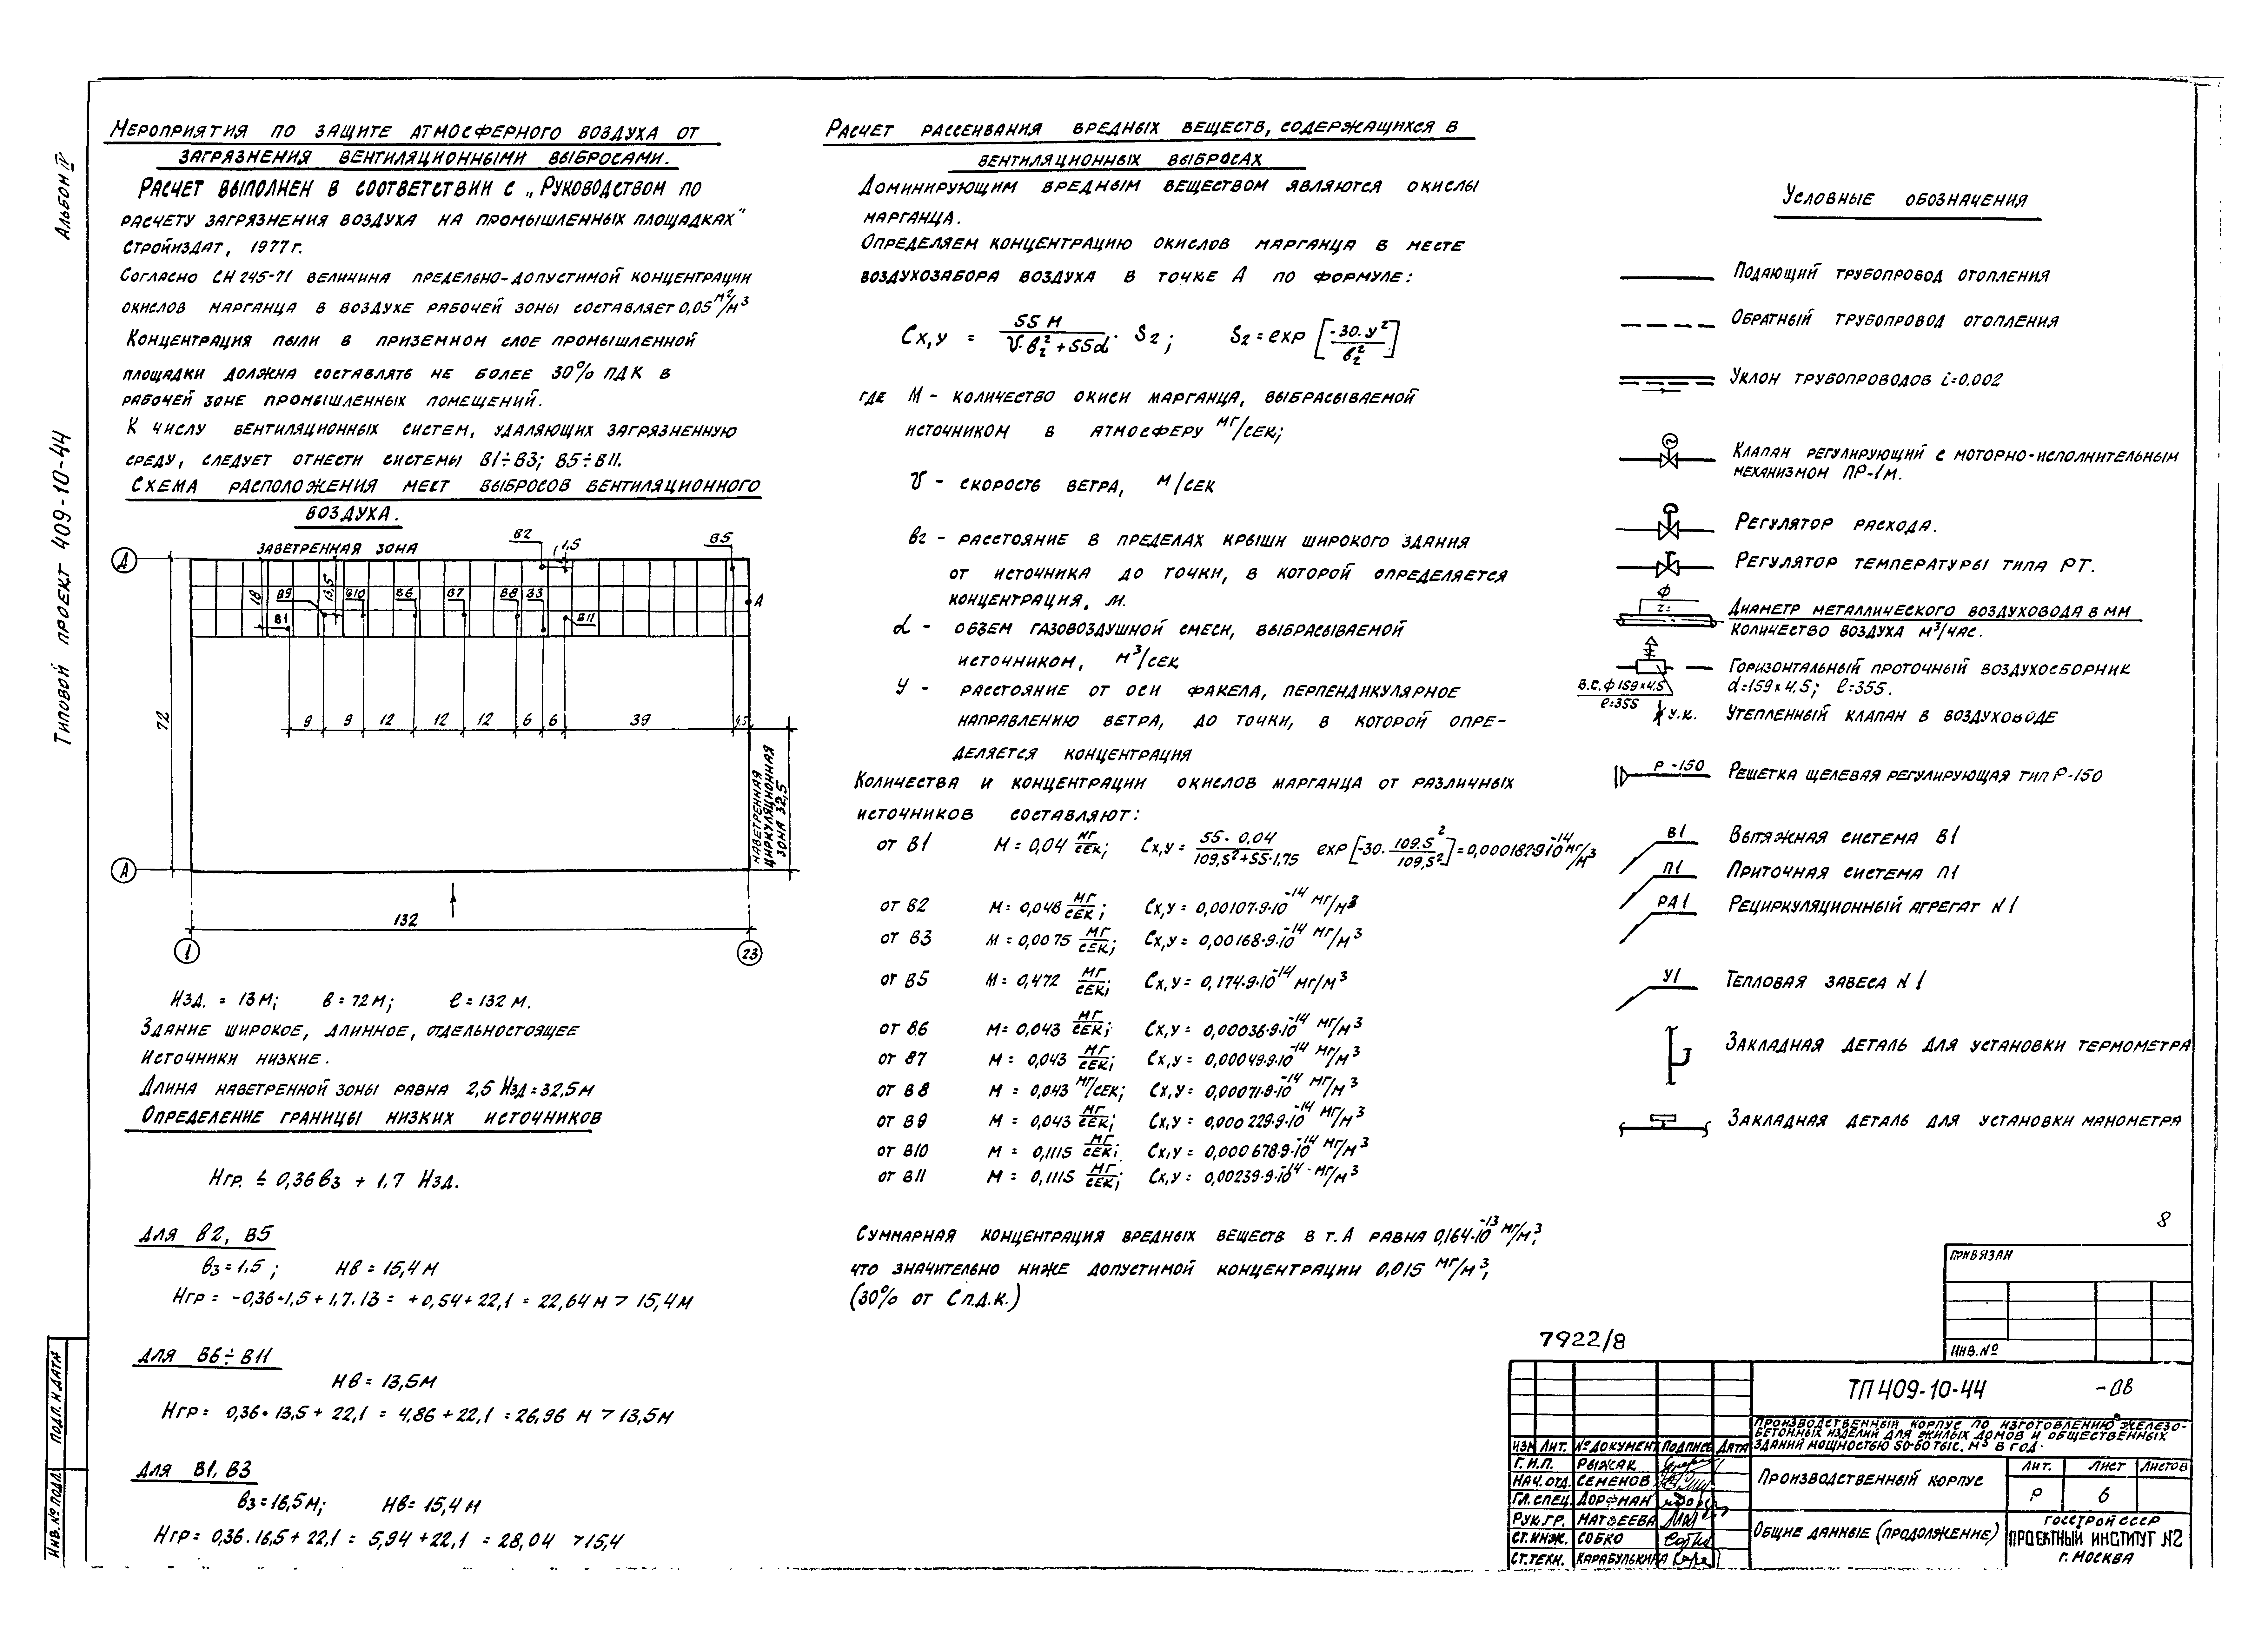 Альбом IV
Типовой проект 409-10-44
Мероприятия по защите атмосферного воздуха от
загрязнения вентиляционными выбросами.
Расчет выполнен в соответствии с „Руководством по
расчету загрязнения воздуха на промышленных площадках"
Стройиздат, 1977г.
Согласно СН 245-71 величина предельно-допустимой концентрации
окислов марганца в воздухе рабочей зоны составляет 0,05 мг/м³
Концентрация пыли в приземном слое промышленной
площадки должна составлять не более 30% ПДК в
рабочей зоне промышленных помещений.
К числу вентиляционных систем, удаляющих загрязненную
среду, следует отнести системы В1÷В3; В5÷В11.
Схема расположения мест выбросов вентиляционного
воздуха.
Заветренная зона
В2
1,5
В5
А
18
В9
13,5
В10
В6
В7
В8
В3
А
В1
В11
72
9 9 12 12 12 6 6 39 4,5
Наветренная
циркуляционная
зона 32,5
А
132
1
23
Нзд. = 13м; в = 72м; ℓ = 132 м.
Здание широкое, длинное, отдельностоящее
Источники низкие.
Длина наветренной зоны равна 2,5 Нзд = 32,5м
Определение границы низких источников
Нгр. ≤ 0,36вз + 1,7 Нзд.
для В2, В5
вз = 1,5; Нв = 15,4 м
Нгр = -0,36·1,5 + 1,7·13 = +0,54 + 22,1 = 22,64 м > 15,4м
для В6÷В11
Нв = 13,5м
Нгр = 0,36·13,5 + 22,1 = 4,86 + 22,1 = 26,96 м > 13,5м
для В1, В3
вз = 16,5м; Нв = 15,4 м
Нгр = 0,36·16,5 + 22,1 = 5,94 + 22,1 = 28,04 > 15,4
Расчет рассеивания вредных веществ, содержащихся в
вентиляционных выбросах
Доминирующим вредным веществом являются окислы
марганца.
Определяем концентрацию окислов марганца в месте
воздухозабора воздуха в точке А по формуле:
Cx,y = 55 М / (V·в₂² + 55α) · S₂; S₂ = exp [-30·y² / в₂²]
где М - количество окиси марганца, выбрасываемой
источником в атмосферу мг/сек;
V - скорость ветра, м/сек
в₂ - расстояние в пределах крыши широкого здания
от источника до точки, в которой определяется
концентрация, м.
α - объем газовоздушной смеси, выбрасываемой
источником, м³/сек
У - расстояние от оси факела, перпендикулярное
направлению ветра, до точки, в которой опре-
деляется концентрация
Количества и концентрации окислов марганца от различных
источников составляют:
от В1 М = 0,04 мг/сек; Cx,y = 55·0,04 / (109,5² + 55·1,75) exp [-30· 109,5² / 109,5²] = 0,000182·9·10⁻¹⁴ мг/м³
от В2 М = 0,048 мг/сек; Cx,y = 0,00107·9·10⁻¹⁴ мг/м³
от В3 М = 0,0075 мг/сек; Cx,y = 0,00168·9·10⁻¹⁴ мг/м³
от В5 М = 0,472 мг/сек; Cx,y = 0,174·9·10⁻¹⁴ мг/м³
от В6 М = 0,043 мг/сек; Cx,y = 0,00036·9·10⁻¹⁴ мг/м³
от В7 М = 0,043 мг/сек; Cx,y = 0,00049·9·10⁻¹⁴ мг/м³
от В8 М = 0,043 мг/сек; Cx,y = 0,00071·9·10⁻¹⁴ мг/м³
от В9 М = 0,043 мг/сек; Cx,y = 0,000229·9·10⁻¹⁴ мг/м³
от В10 М = 0,1115 мг/сек; Cx,y = 0,000678·9·10⁻¹⁴ мг/м³
от В11 М = 0,1115 мг/сек; Cx,y = 0,00239·9·10⁻¹⁴ мг/м³
Суммарная концентрация вредных веществ в т. А равна 0,164·10⁻¹³ мг/м³,
что значительно ниже допустимой концентрации 0,015 мг/м³,
(30% от Сп.д.к.)
Условные обозначения
Подающий трубопровод отопления
Обратный трубопровод отопления
Уклон трубопроводов i=0,002
Клапан регулирующий с моторно-исполнительным
механизмом ПР-1М.
Регулятор расхода.
Регулятор температуры типа РТ.
Ф
Диаметр металлического воздуховода в мм
Количество воздуха м³/час.
Горизонтальный проточный воздухосборник
d=159×4,5; ℓ=355.
В.С. Ф 159×4,5
ℓ=355
У.К. Утепленный клапан в воздуховоде
Р-150 Решетка щелевая регулирующая тип Р-150
В1 Вытяжная система В1
П1 Приточная система П1
РА1 Рециркуляционный агрегат N1
У1 Тепловая завеса N1
Закладная деталь для установки термометра
Закладная деталь для установки манометра
8
Привязан
Инв. №
7922/8
ТП 409-10-44 -ОВ
Производственный корпус по изготовлению железо-
бетонных изделий для жилых домов и общественных
зданий мощностью 50-60 тыс. м³ в год.
Изм Лит. № документ Подпись Дата
Г.И.П. Рыжак
Нач. отд. Семенов
Гл. спец. Дорфман
Рук. гр. Матвеева
Ст. инж. Собко
Ст. техн. Карабулькина
Производственный корпус
Лит. Лист Листов
Р 6
Общие данные (продолжение)
Госстрой СССР
Проектный институт №2
г. Москва
Подп. и дата
Инв. № подл.